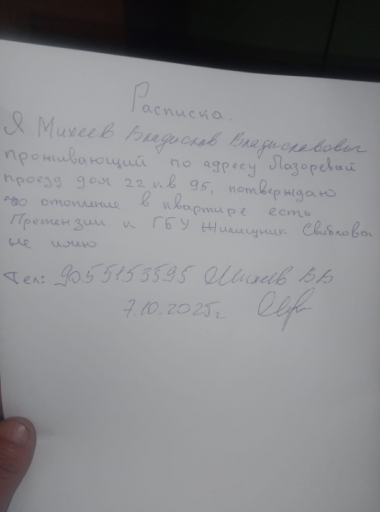 Расписка.
Я Михеев Владислав Владиславович
проживающий по адресу Лазоревый
проезд дом 22 кв 95, потверждаю
что отопление в квартире есть
Претензии к ГБУ Жилищник Свиблово
не имею
Тел: 9055153595 Михеев В В
7.10.2025г.